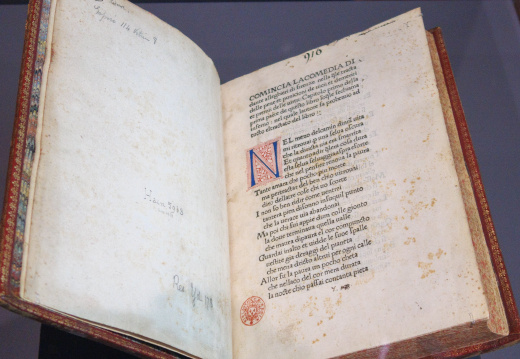 910
COMINCIA LA COMEDIA DI
dante alleghieri di fiorenze nella q̄le tracta
delle pene et punitioni de uitii et demeriti
et premii delle uirtu: Capitolo primo della
prima parte de questo libro loq̄le sechiama
inferno: nel quale lautore fa prohemio ad
tucto eltractato del libro:·
NEL mezo delcamin dinr̄a uita
mi trouai p̄ una selua oscura
che la diricta uia era smarrita
Et quanto adir q̄lera cosa dura
esta selua seluaggia aspra eforte
che nel pensier renoua la paura
Tante amara che pocho piu morte
ma pertractar del ben chio uitrouai
diro dellaltre cose chi uo scorte
I non so ben ridir come uentrai
tantera pien disonno insuquel punto
che la uerace uia abandonai
Ma poi chi fui appie dum colle gionto
la doue terminaua quella ualle
che mauea dipaura el cor compuncto
Guardai inalto et uidde le sue spalle
uestite gia deraggi del pianeta
che mena dricto altrui per ogni calle
Allor fu la paura un pocho cheta
che nellaco del cor mera durata
la nocte chio passai contanta pieta